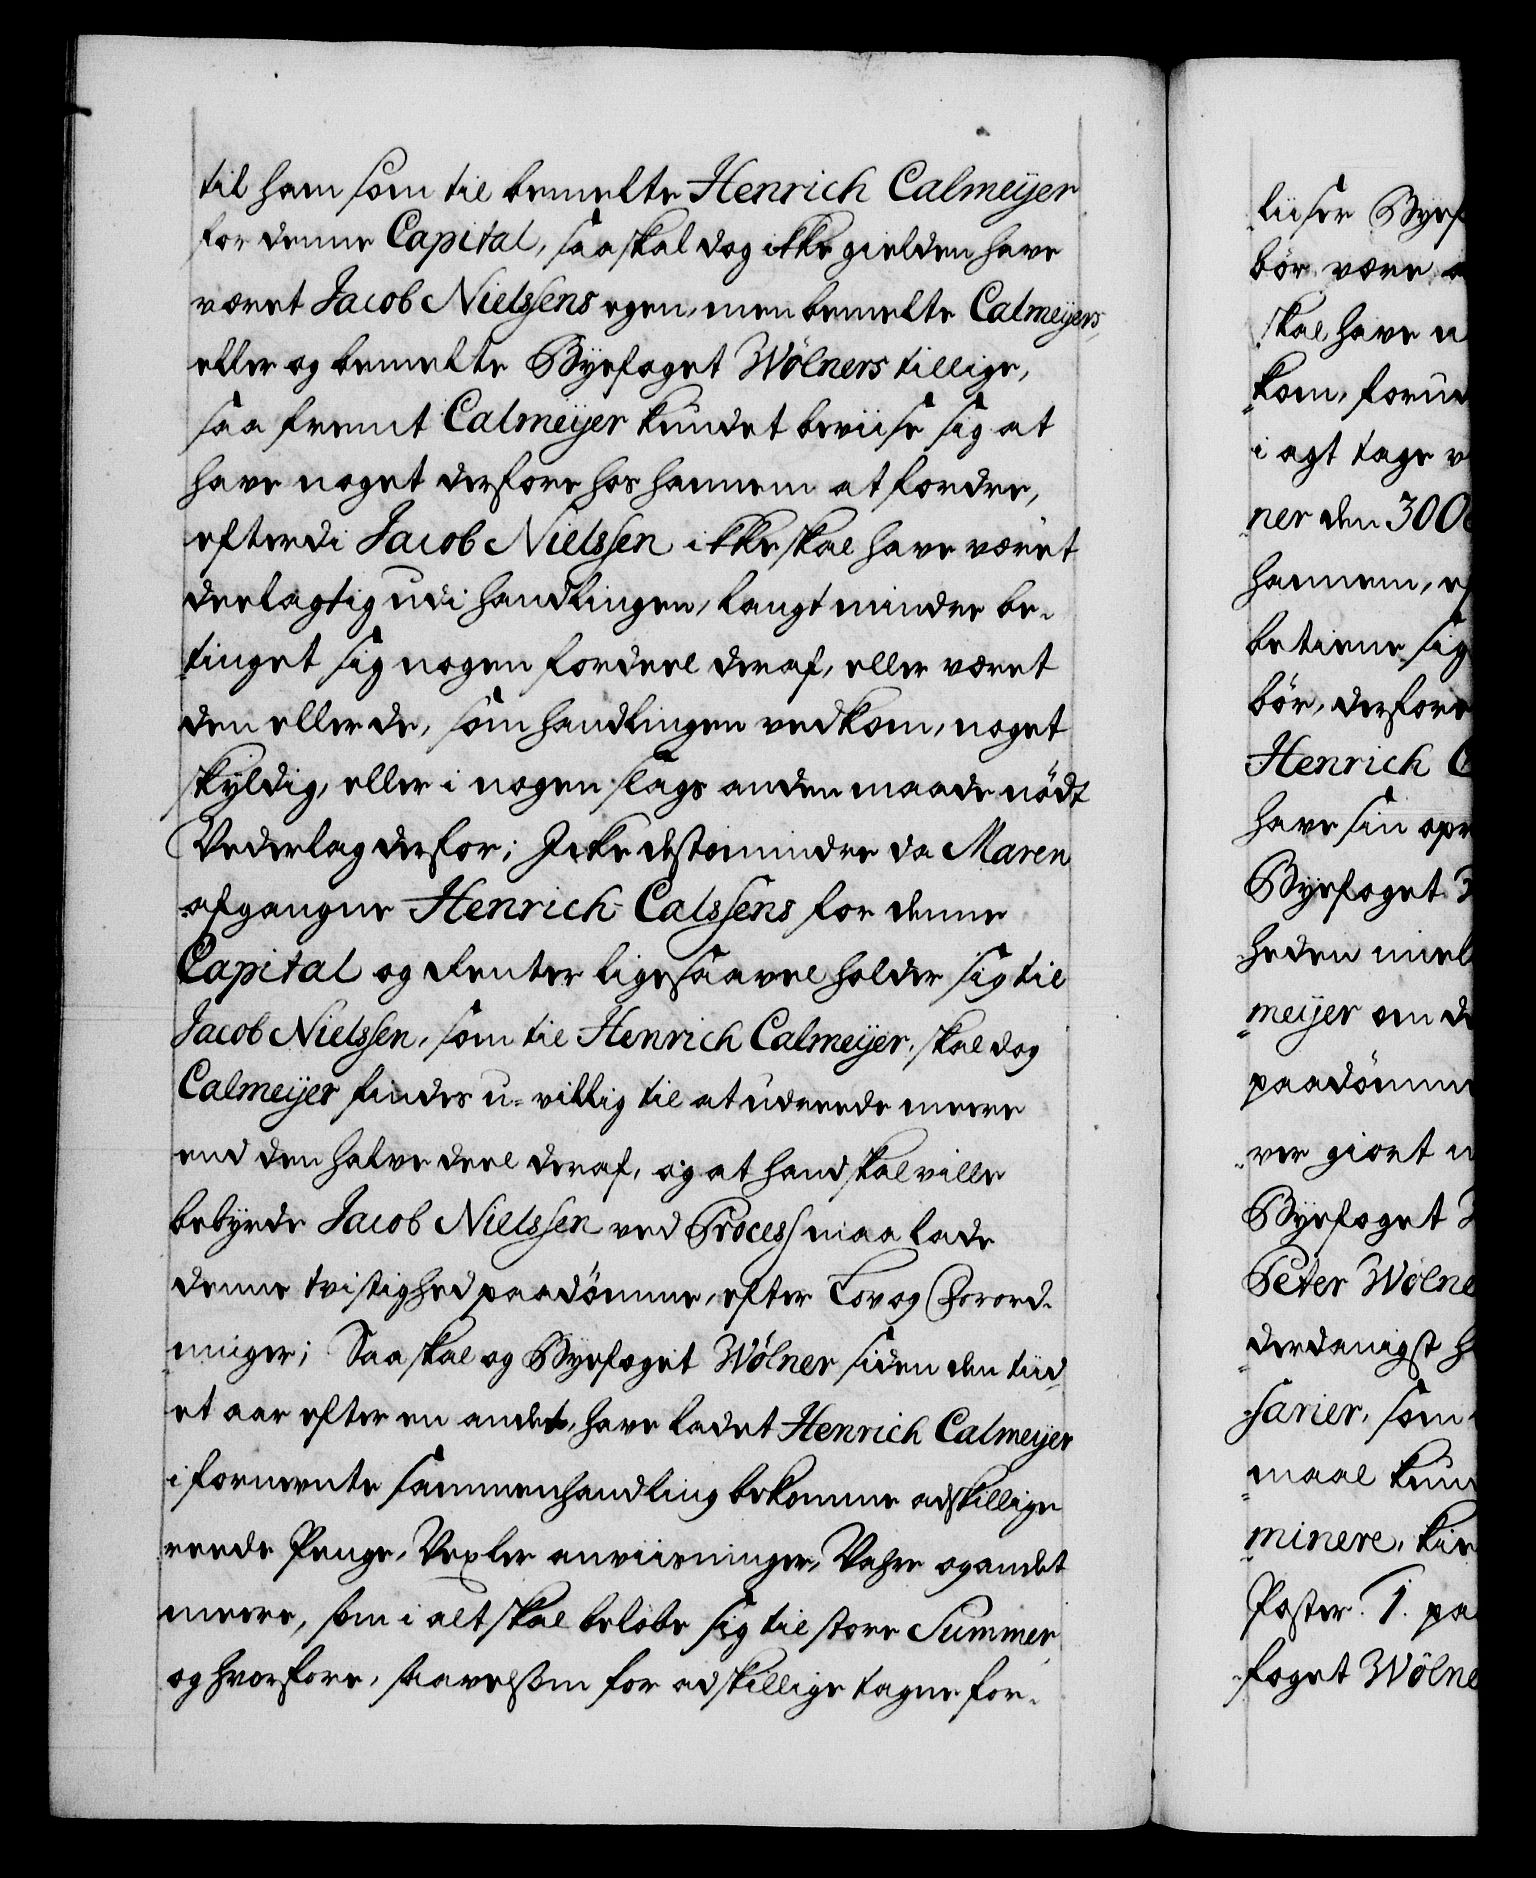 til ham som til bemelte Henrich Calmeyer
for denne Capital, saa skal dog ikke gielden have
været Jacob Nielssens egen, men bemelte Calmeyers,
eller og bemelte Byefoget Wölners tillige,
saa fremt Calmeyer kundet beviise sig at
have noget derfore hos hannem at fordre,
efterdi Jacob Nielssen ikke skal have været
deelagtig udi handlingen, langt mindre be-
tinget sig nogen fordeel deraf, eller været
den eller de, som handlingen vedkom, noget
skyldig, eller i nogen slags anden maade nödt
Vederlag derfor; Icke destomindre da Maren
afgangne Henrich Calssens for denne
Capital og Renter ligesaavel holder sig til
Jacob Nielssen, som til Henrich Calmeyer, skal dog
Calmeyer findes u-villig til at udreede meere
end den halve deel deraf, og at hand skal ville
bebyrde Jacob Nielssen ved Process maa lade
denne tvistighed paadömme, efter Lov og Forord-
ninger; Saa skal og Byefoget Wölner siden den tiid
et aar efter en andet, have ladet Henrich Calmeyer
i fornevnte sammenhandling bekomme adskillige
reede Penge, Vexler anviisninger, Vahre og andet
meere, som i alt skal belöbe sig til store Summer
og hvorfore, saavelsom for adskillige tagne for-
liiser Byef
bör være
skal have
kom, foru
i agt tage
ner den 300
hannem,
betiene sig
bör, derfore
Henrich C
have sin
Byefoget
heden
meyer om
paadömm
ver giort
Byefoget
Peter Wölne
derdanigst
sarier, som
maal kun
minere,
Poster. 1. pa
foget Wölne